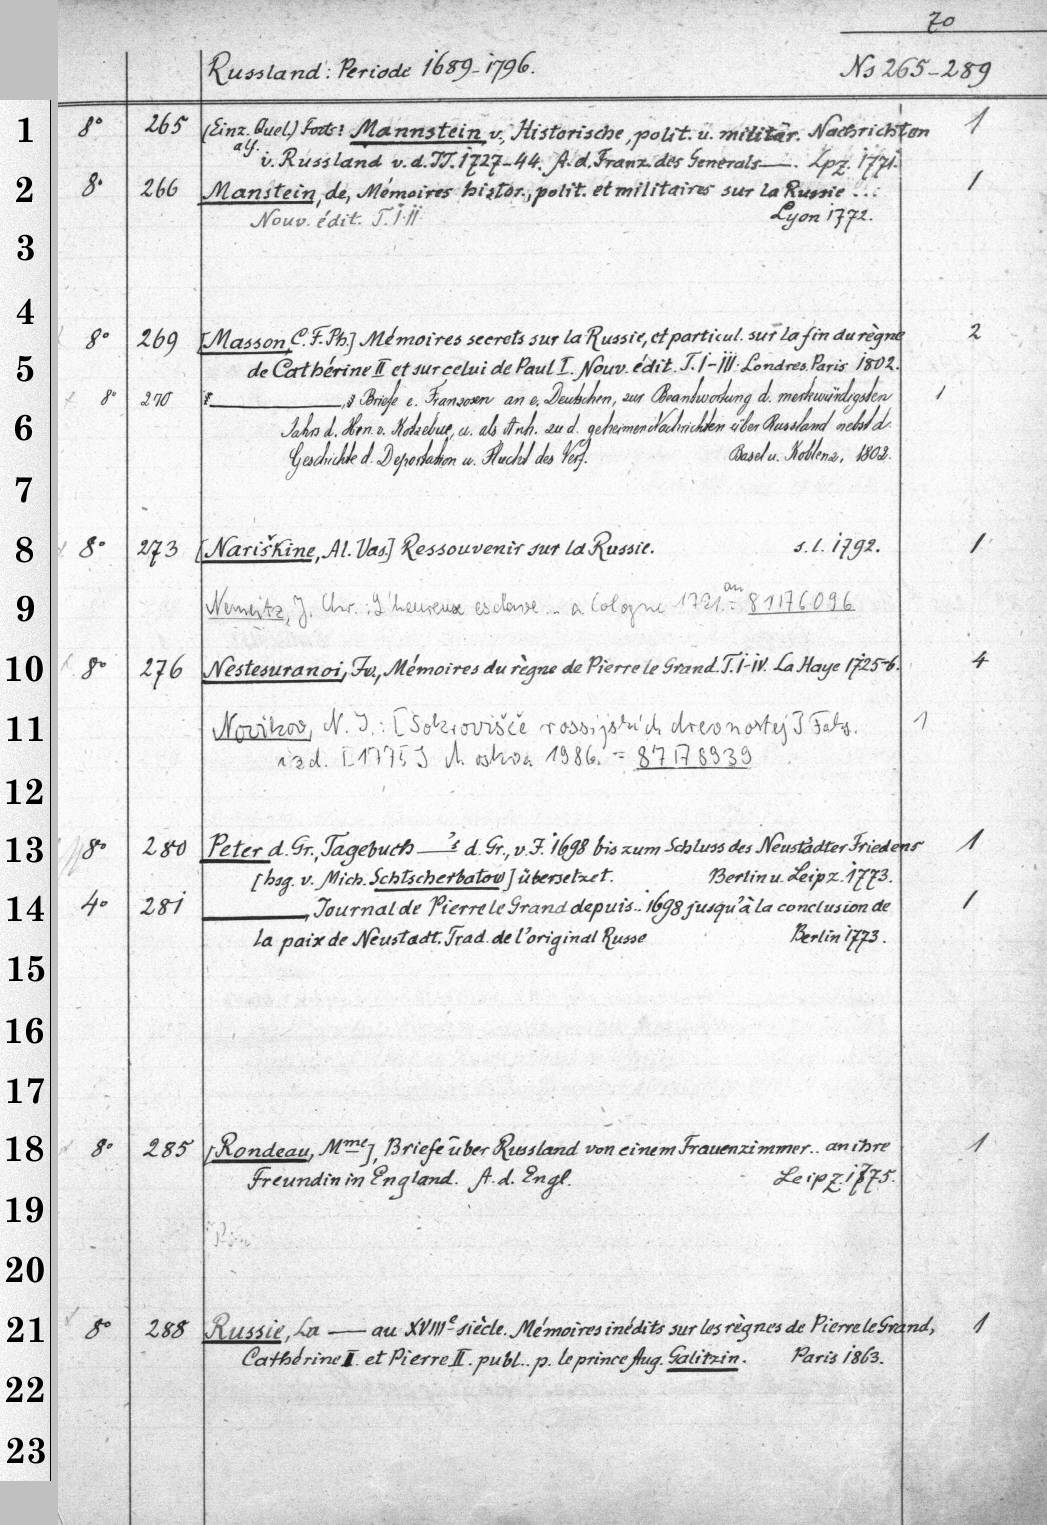 70
Russland: Periode 1689-1796. Ns 265-289
1 8° 265 (Einz. Quel.) Forts: Mannstein v., Historische, polit. u. militär. Nachrichten 1
ay. v. Russland v. d. JJ. 1727-44. A. d. Franz. des Generals —. Lpz. 1771.
2 8° 266 Manstein, de, Mémoires histor., polit. et militaires sur la Russie ... 1
Nouv. édit. T. I-II Lyon 1772.
3
4
8° 269 [Masson, C. F. Ph.] Mémoires secrets sur la Russie, et particul. sur la fin du règne 2
5 de Cathérine II et sur celui de Paul I. Nouv. édit. T. I-III. Londres. Paris 1802.
8° 270 [———,] Briefe e. Franzosen an e. Deutschen, zur Beantwortung d. merkwürdigsten 1
6 Jahrs d. Hrn. v. Kotzebue, u. als Anh. zu d. geheimen Nachrichten über Russland nebst d.
Geschichte d. Deportation u. Flucht des Verf. Basel u. Koblenz, 1802.
7
8 8° 273 [Nariškine, Al. Vas.] Ressouvenir sur la Russie. s. l. 1792. 1
9 Nemeitz, J. Chr.: L'heureux esclave ... a Cologne 1721. an = 81176096
10 8° 276 Nestesuranoi, Iv., Mémoires du règne de Pierre le Grand. T. I-IV. La Haye 1725-6. 4
11 Novikov, N. I.: [Sokrovišče rossijskich drevnostej] Faks. 1
izd. [1775] Moskva 1986. = 87178939
12
13 8° 280 Peter d. Gr., Tagebuch —'s d. Gr., v. J. 1698 bis zum Schluss des Neustädter Friedens 1
[hsg. v. Mich. Schtscherbatow] übersetzet. Berlin u. Leipz. 1773.
14 4° 281 ———, Journal de Pierre le Grand depuis .. 1698 jusqu'à la conclusion de 1
la paix de Neustadt. Trad. de l'original Russe Berlin 1773.
15
16
17
18 8° 285 [Rondeau, Mme], Briefe über Russland von einem Frauenzimmer .. an ihre 1
Freundin in England. A. d. Engl. Leipz. 1775.
19
20
21 8° 288 Russie, La — au XVIIIe siècle. Mémoires inédits sur les règnes de Pierre le Grand, 1
Cathérine I. et Pierre II. publ. p. le prince Aug. Galitzin. Paris 1863.
22
23